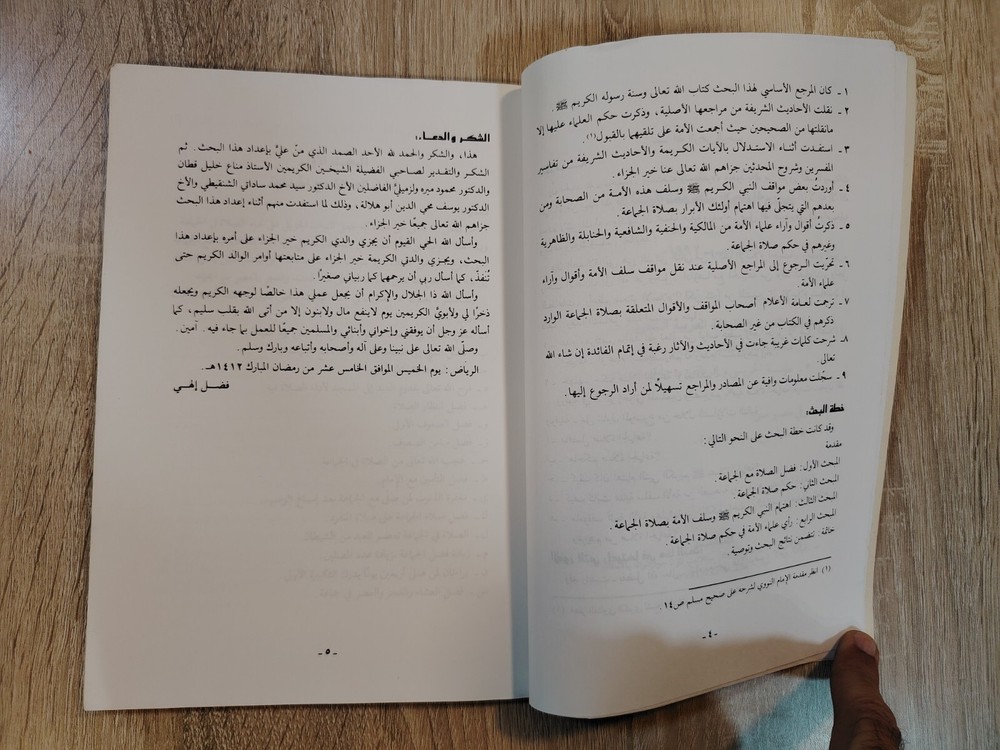 ١ - كان المرجع الأساسي لهذا البحث كتاب الله تعالى وسنة رسوله الكريم ﷺ .
٢ - نقلت الأحاديث الشريفة من مراجعها الأصلية، وذكرت حكم العلماء عليها إلا
مانقلتها من الصحيحين حيث أجمعت الأمة على تلقيهما بالقبول(١).
٣ - استفدت أثناء الاستدلال بالآيات الكريمة والأحاديث الشريفة من تفاسير
المفسرين وشروح المحدثين جزاهم الله تعالى عنا خير الجزاء.
٤ - أوردتُ بعض مواقف النبي الكريم ﷺ وسلف هذه الأمة من الصحابة ومن
بعدهم التي يتجلّى فيها اهتمام أولئك الأبرار بصلاة الجماعة.
٥ - ذكرتُ أقوال وآراء علماء الأمة من المالكية والحنفية والشافعية والحنابلة والظاهرية
وغيرهم في حكم صلاة الجماعة.
٦ - تحرّيت الرجوع إلى المراجع الأصلية عند نقل مواقف سلف الأمة وأقوال وآراء
علماء الأمة.
٧ - ترجمت لعامة الأعلام أصحاب المواقف والأقوال المتعلقة بصلاة الجماعة الوارد
ذكرهم في الكتاب من غير الصحابة.
٨ - شرحت كلمات غريبة جاءت في الأحاديث والآثار رغبة في إتمام الفائدة إن شاء الله
تعالى.
٩ - سجّلت معلومات وافية عن المصادر والمراجع تسهيلًا لمن أراد الرجوع إليها.
خطة البحث:
وقد كانت خطة البحث على النحو التالي:
مقدمة
المبحث الأول: فضل الصلاة مع الجماعة.
المبحث الثاني: حكم صلاة الجماعة.
المبحث الثالث: اهتمام النبي الكريم ﷺ وسلف الأمة بصلاة الجماعة.
المبحث الرابع: رأي علماء الأمة في حكم صلاة الجماعة.
خاتمة: تتضمن نتائج البحث وتوصية.
(١) انظر مقدمة الإمام النووي لشرحه على صحيح مسلم ص١٤.
- ٤ -
الشكر والدعاء:
هذا، والشكر والحمد لله الأحد الصمد الذي منّ عليّ بإعداد هذا البحث. ثم
الشكر والتقدير لصاحبي الفضيلة الشيخين الكريمين الأستاذ مناع خليل قطان
والدكتور محمود ميره ولزميليَّ الفاضلين الأخ الدكتور سيد محمد ساداتي الشنقيطي والأخ
الدكتور يوسف محي الدين أبو هلالة، وذلك لما استفدت منهم أثناء إعداد هذا البحث
جزاهم الله تعالى جميعًا خير الجزاء.
وأسأل الله الحي القيوم أن يجزي والدي الكريم خير الجزاء على أمره بإعداد هذا
البحث، ويجزي والدتي الكريمة خير الجزاء على متابعتها أوامر الوالد الكريم حتى
تُنفذ، كما أسأل ربي أن يرحمهما كما ربياني صغيرًا.
وأسأل الله ذا الجلال والإكرام أن يجعل عملي هذا خالصًا لوجهه الكريم ويجعله
ذخرًا لي ولأبويَّ الكريمين يوم لاينفع مال ولابنون إلا من أتى الله بقلب سليم، كما
أسأله عز وجل أن يوفقني وإخواني وأبنائي والمسلمين جميعًا للعمل بما جاء فيه. آمين.
وصلّى الله تعالى على نبينا وعلى آله وأصحابه وأتباعه وبارك وسلم.
الرياض: يوم الخميس الموافق الخامس عشر من رمضان المبارك ١٤١٢هـ.
فضل إلهي
- ٥ -